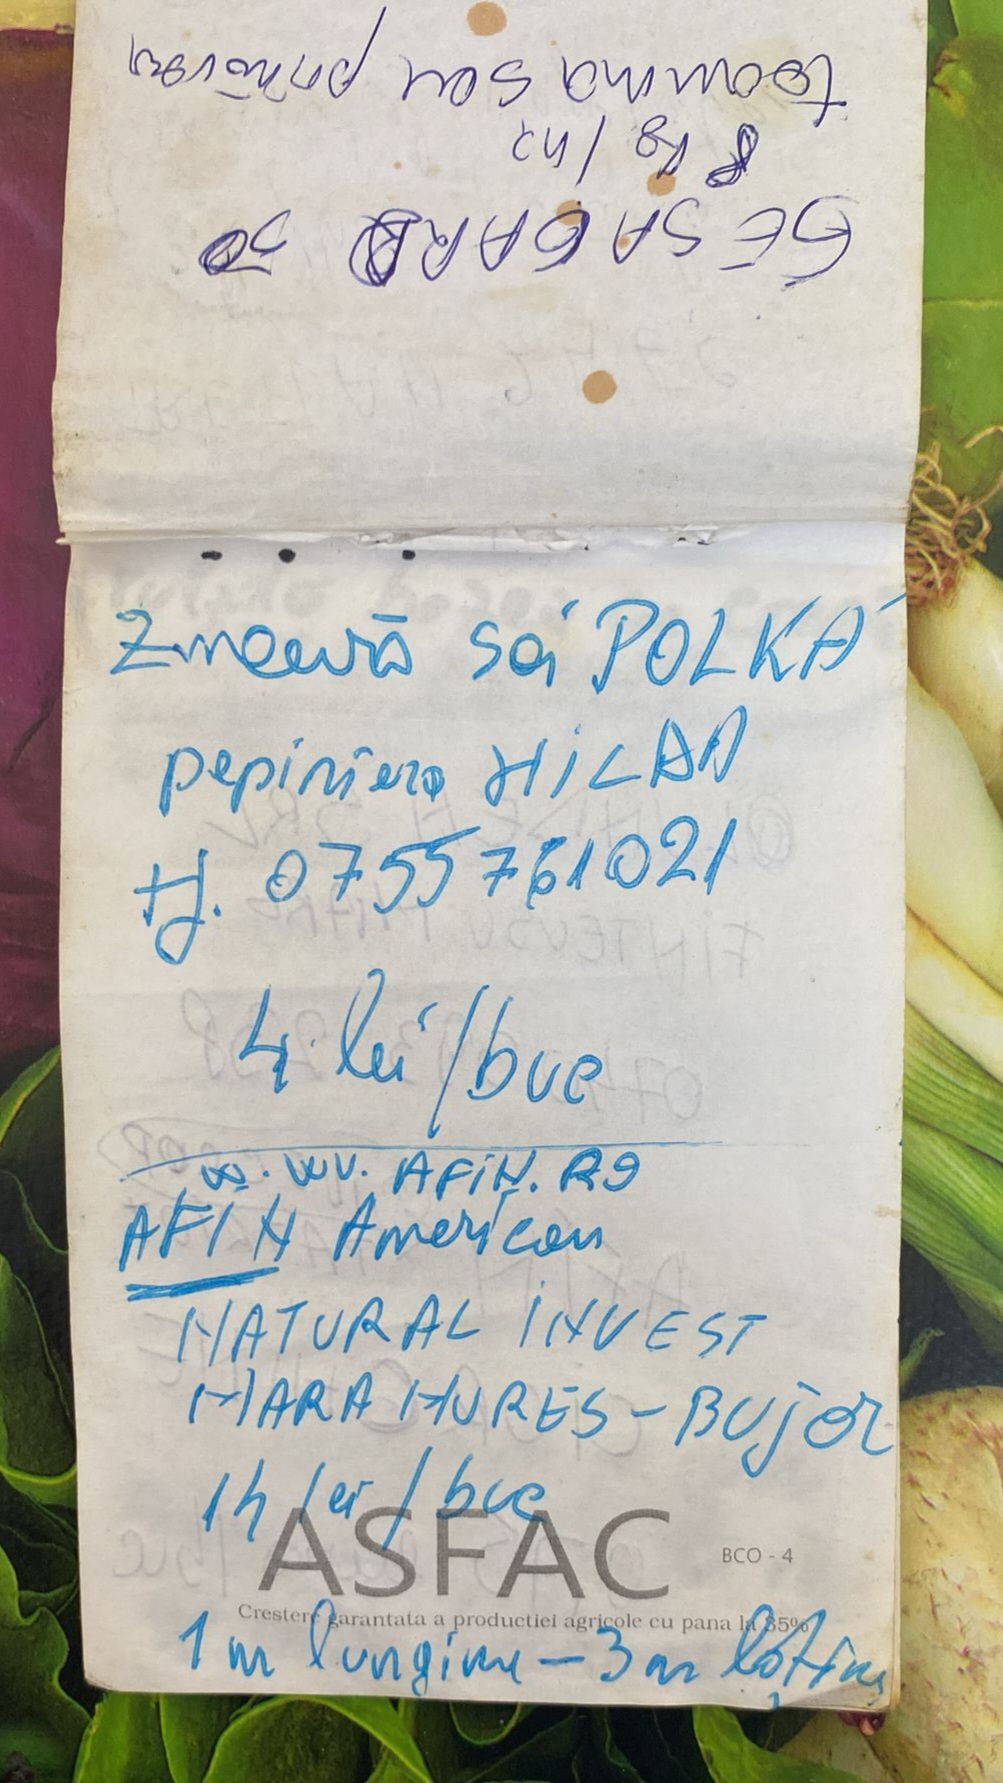 GESAGARD 50
8 kg/ha
toamna sau primăvara
Zmeură soi POLKA
pepiniera HILAD
tf. 0755761021
4 lei/buc
w.wv. AFiN.RO
AFIN American
NATURAL INVEST
MARAMURES - BUJOR
14 lei/buc
ASFAC
BCO - 4
Crestere garantata a productiei agricole cu pana la 35%
1 m lungime - 3 m lățime